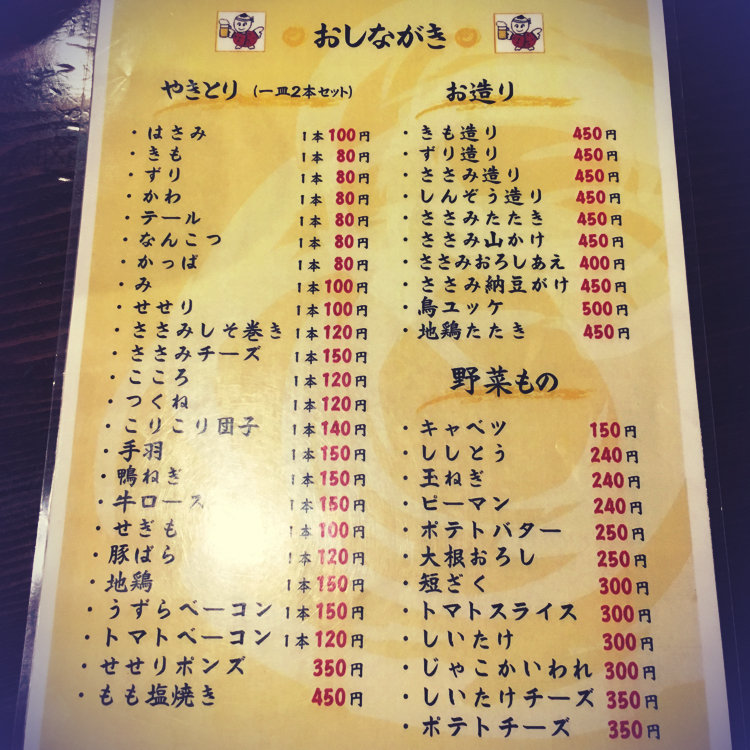 おしながき
やきとり (一皿2本セット)
・はさみ 1本100円
・きも 1本80円
・ずり 1本80円
・かわ 1本80円
・テール 1本80円
・なんこつ 1本80円
・かっぱ 1本80円
・み 1本100円
・せせり 1本100円
・ささみしそ巻き 1本120円
・ささみチーズ 1本150円
・こころ 1本120円
・つくね 1本120円
・こりこり団子 1本140円
・手羽 1本150円
・鴨ねぎ 1本150円
・牛ロース 1本150円
・せぎも 1本100円
・豚ばら 1本120円
・地鶏 1本150円
・うずらベーコン 1本150円
・トマトベーコン 1本120円
・せせりポンズ 350円
・もも塩焼き 450円
お造り
・きも造り 450円
・ずり造り 450円
・ささみ造り 450円
・しんぞう造り 450円
・ささみたたき 450円
・ささみ山かけ 450円
・ささみおろしあえ 400円
・ささみ納豆がけ 450円
・鳥ユッケ 500円
・地鶏たたき 450円
野菜もの
・キャベツ 150円
・ししとう 240円
・玉ねぎ 240円
・ピーマン 240円
・ポテトバター 250円
・大根おろし 250円
・短ざく 300円
・トマトスライス 300円
・しいたけ 300円
・じゃこかいわれ 300円
・しいたけチーズ 350円
・ポテトチーズ 350円